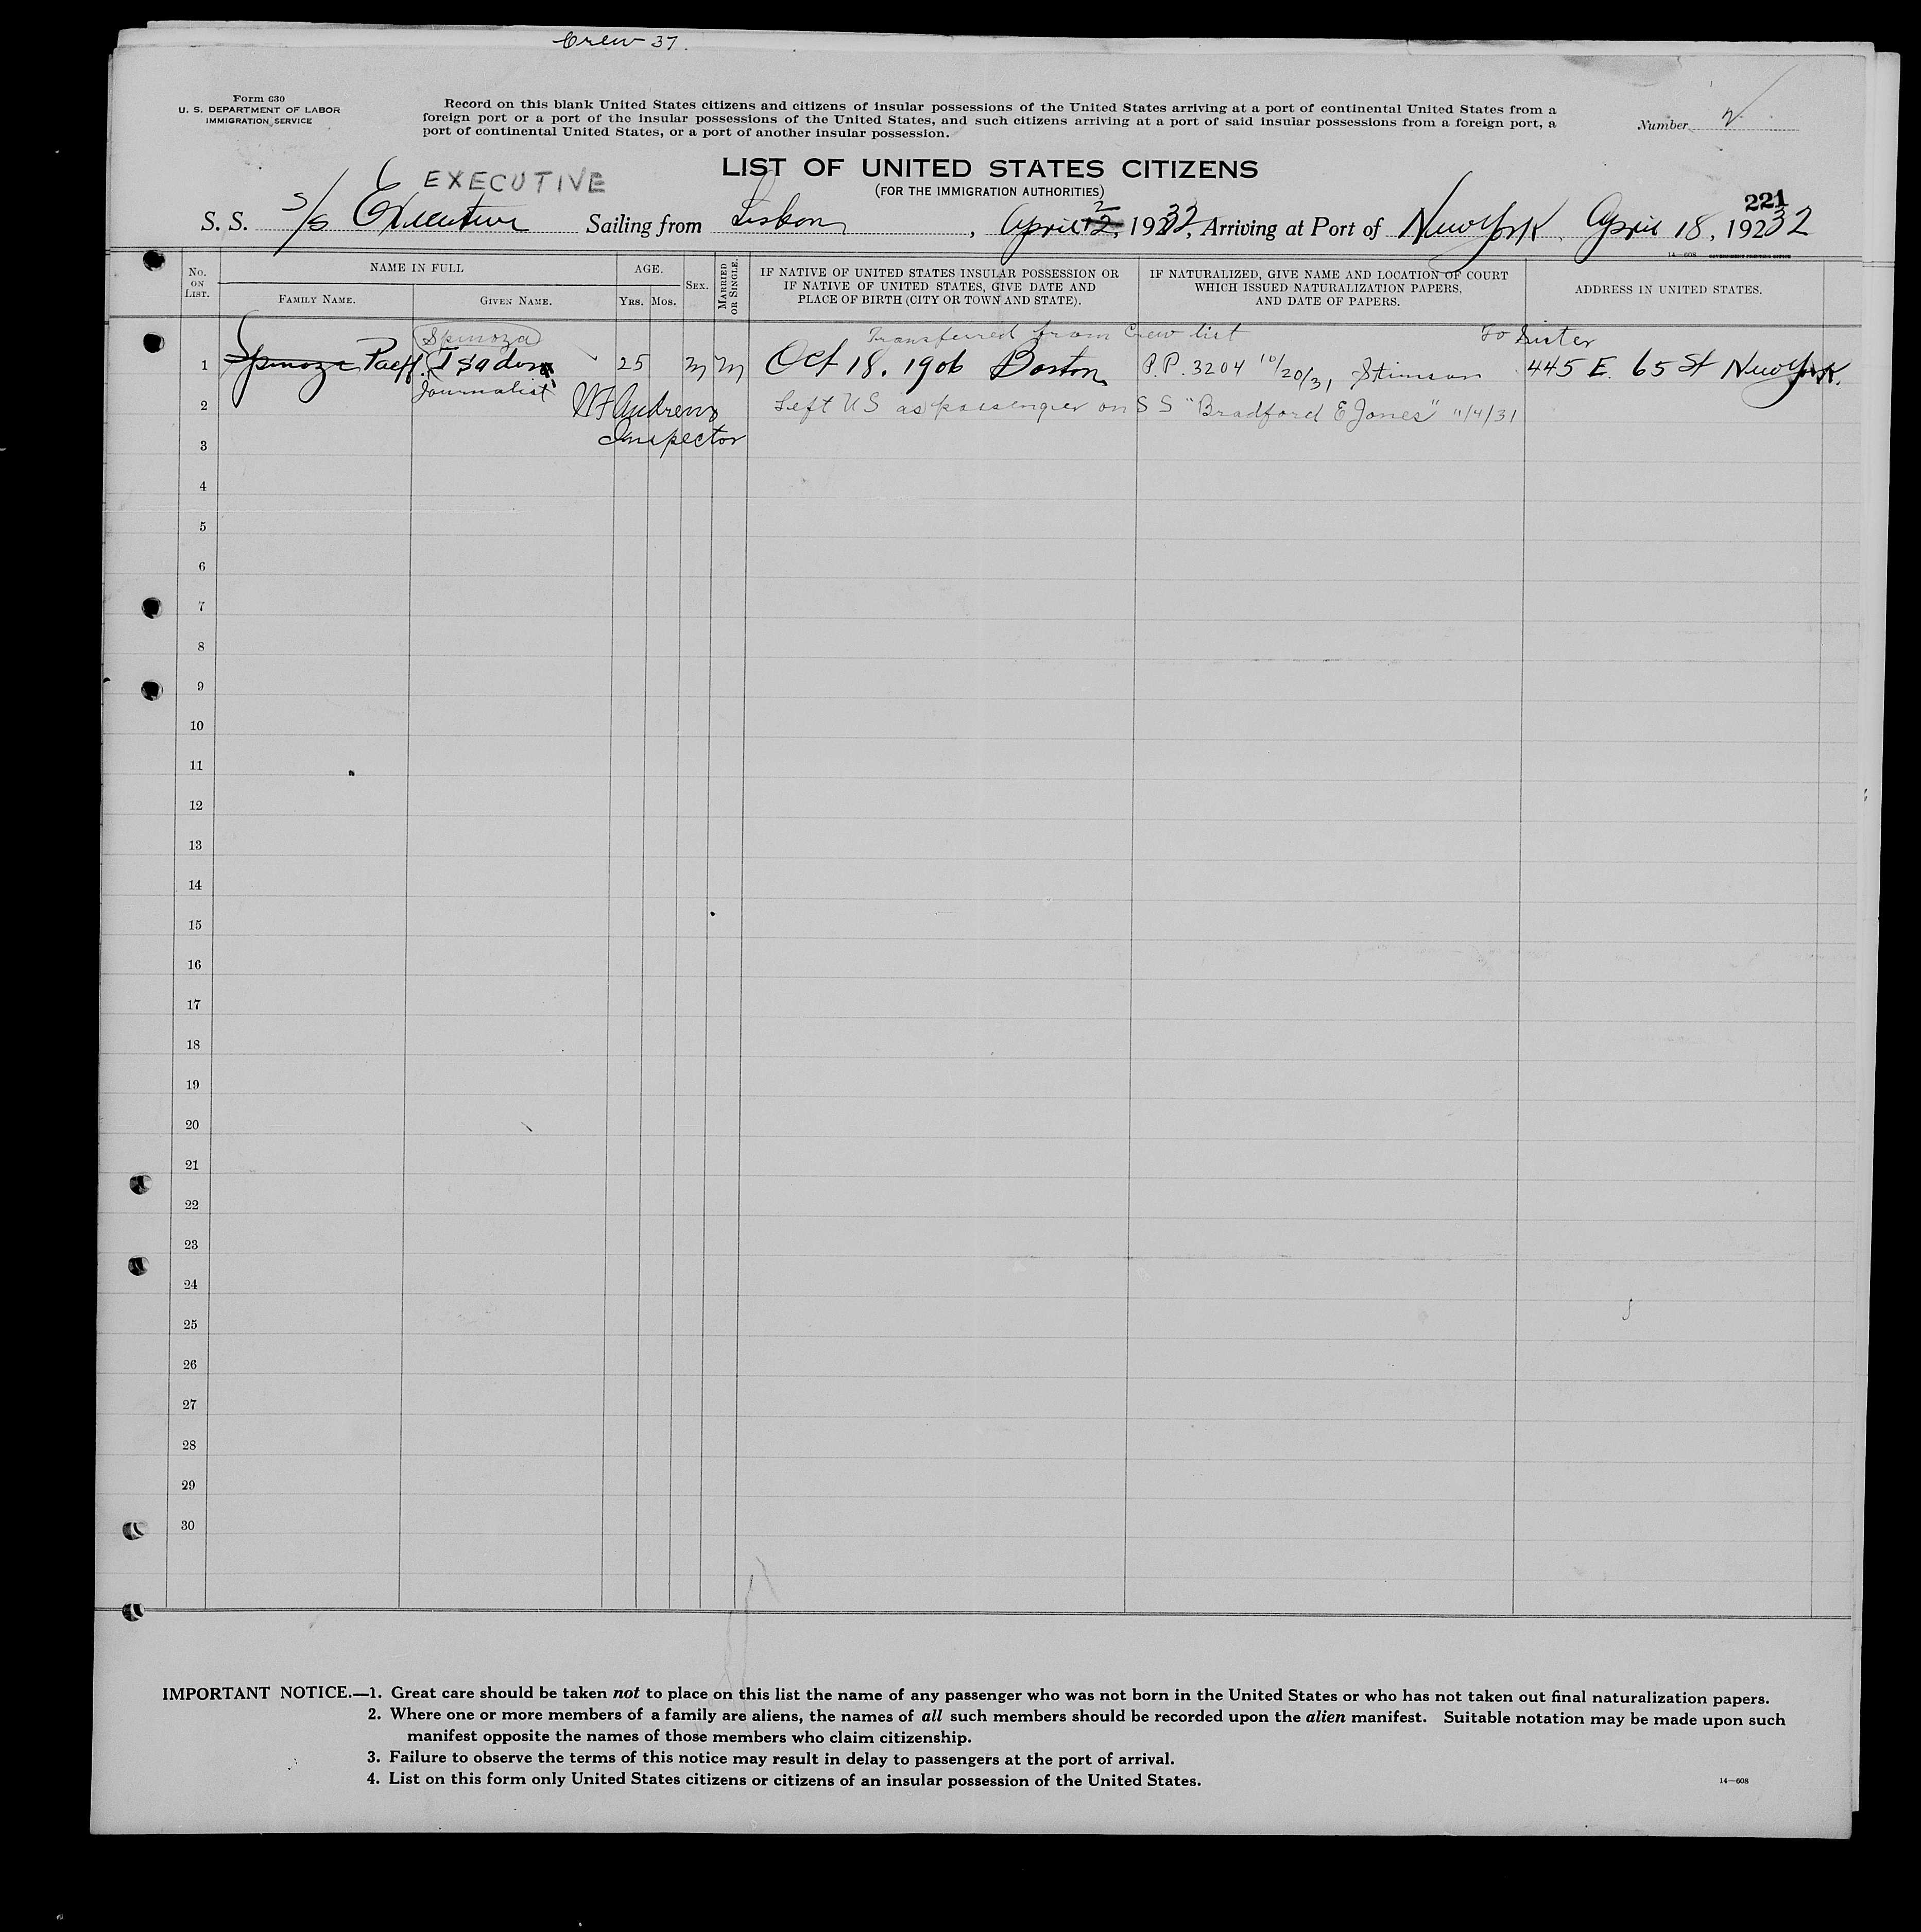 Crew 37.
Form 630
U. S. DEPARTMENT OF LABOR
IMMIGRATION SERVICE
Record on this blank United States citizens and citizens of insular possessions of the United States arriving at a port of continental United States from a
foreign port or a port of the insular possessions of the United States, and such citizens arriving at a port of said insular possessions from a foreign port, a
port of continental United States, or a port of another insular possession.
Number 2
LIST OF UNITED STATES CITIZENS
(FOR THE IMMIGRATION AUTHORITIES)
EXECUTIVE
221
S. S. S/S Executive Sailing from Lisbon, April 2, 1932, Arriving at Port of New York April 18, 1932
14—608 GOVERNMENT PRINTING OFFICE
No. ON LIST.
NAME IN FULL
FAMILY NAME.
GIVEN NAME.
AGE.
YRS. MOS.
SEX.
MARRIED OR SINGLE.
IF NATIVE OF UNITED STATES INSULAR POSSESSION OR
IF NATIVE OF UNITED STATES, GIVE DATE AND
PLACE OF BIRTH (CITY OR TOWN AND STATE).
IF NATURALIZED, GIVE NAME AND LOCATION OF COURT
WHICH ISSUED NATURALIZATION PAPERS,
AND DATE OF PAPERS.
ADDRESS IN UNITED STATES.
Spinoza Transferred from Crew list To Sister
1 Spinoza Paeff. Isadore 25 M M Oct 18. 1906 Boston P.P. 3204 10/20/31 Stimson 445 E. 65 St New York.
Journalist
2 WF Andrews Left US as passenger on S S "Bradford E Jones" 11/4/31
Inspector
3
4
5
6
7
8
9
10
11
12
13
14
15
16
17
18
19
20
21
22
23
24
25
26
27
28
29
30
IMPORTANT NOTICE.—1. Great care should be taken not to place on this list the name of any passenger who was not born in the United States or who has not taken out final naturalization papers.
2. Where one or more members of a family are aliens, the names of all such members should be recorded upon the alien manifest. Suitable notation may be made upon such
manifest opposite the names of those members who claim citizenship.
3. Failure to observe the terms of this notice may result in delay to passengers at the port of arrival.
4. List on this form only United States citizens or citizens of an insular possession of the United States.
14—608